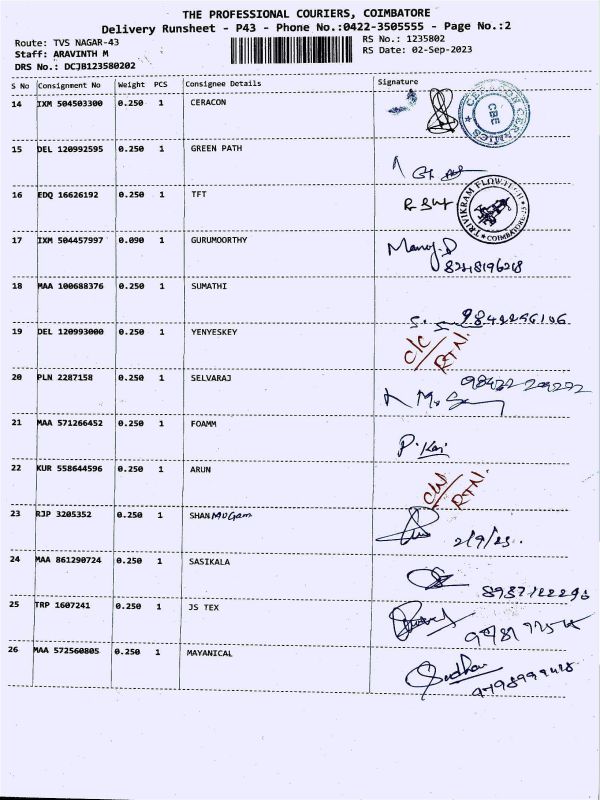 THE PROFESSIONAL COURIERS, COIMBATORE
Delivery Runsheet - P43 - Phone No.:0422-3505555 - Page No.:2
Route: TVS NAGAR-43
RS No.: 1235802
Staff: ARAVINTH M
RS Date: 02-Sep-2023
DRS No.: DCJB123580202
S No Consignment No Weight PCS Consignee Details Signature
14 IXM 504503300 0.250 1 CERACON
CERACON CERAMICS ★ CBE
15 DEL 120992595 0.250 1 GREEN PATH
16 EDQ 16626192 0.250 1 TFT
TRIVIKRAM FLOWTECH ★ COIMBATORE
17 IXM 504457997 0.090 1 GURUMOORTHY Manoj.D
8248196218
18 MAA 100688376 0.250 1 SUMATHI
19 DEL 120993000 0.250 1 YENYESKEY C/C
RTN.
20 PLN 2287158 0.250 1 SELVARAJ
21 MAA 571266452 0.250 1 FOAMM
22 KUR 558644596 0.250 1 ARUN
RTN.
23 RJP 3205352 0.250 1 SHANMuGam
2/9/23.
24 MAA 861290724 0.250 1 SASIKALA
25 TRP 1607241 0.250 1 JS TEX
26 MAA 572560805 0.250 1 MAYANICAL